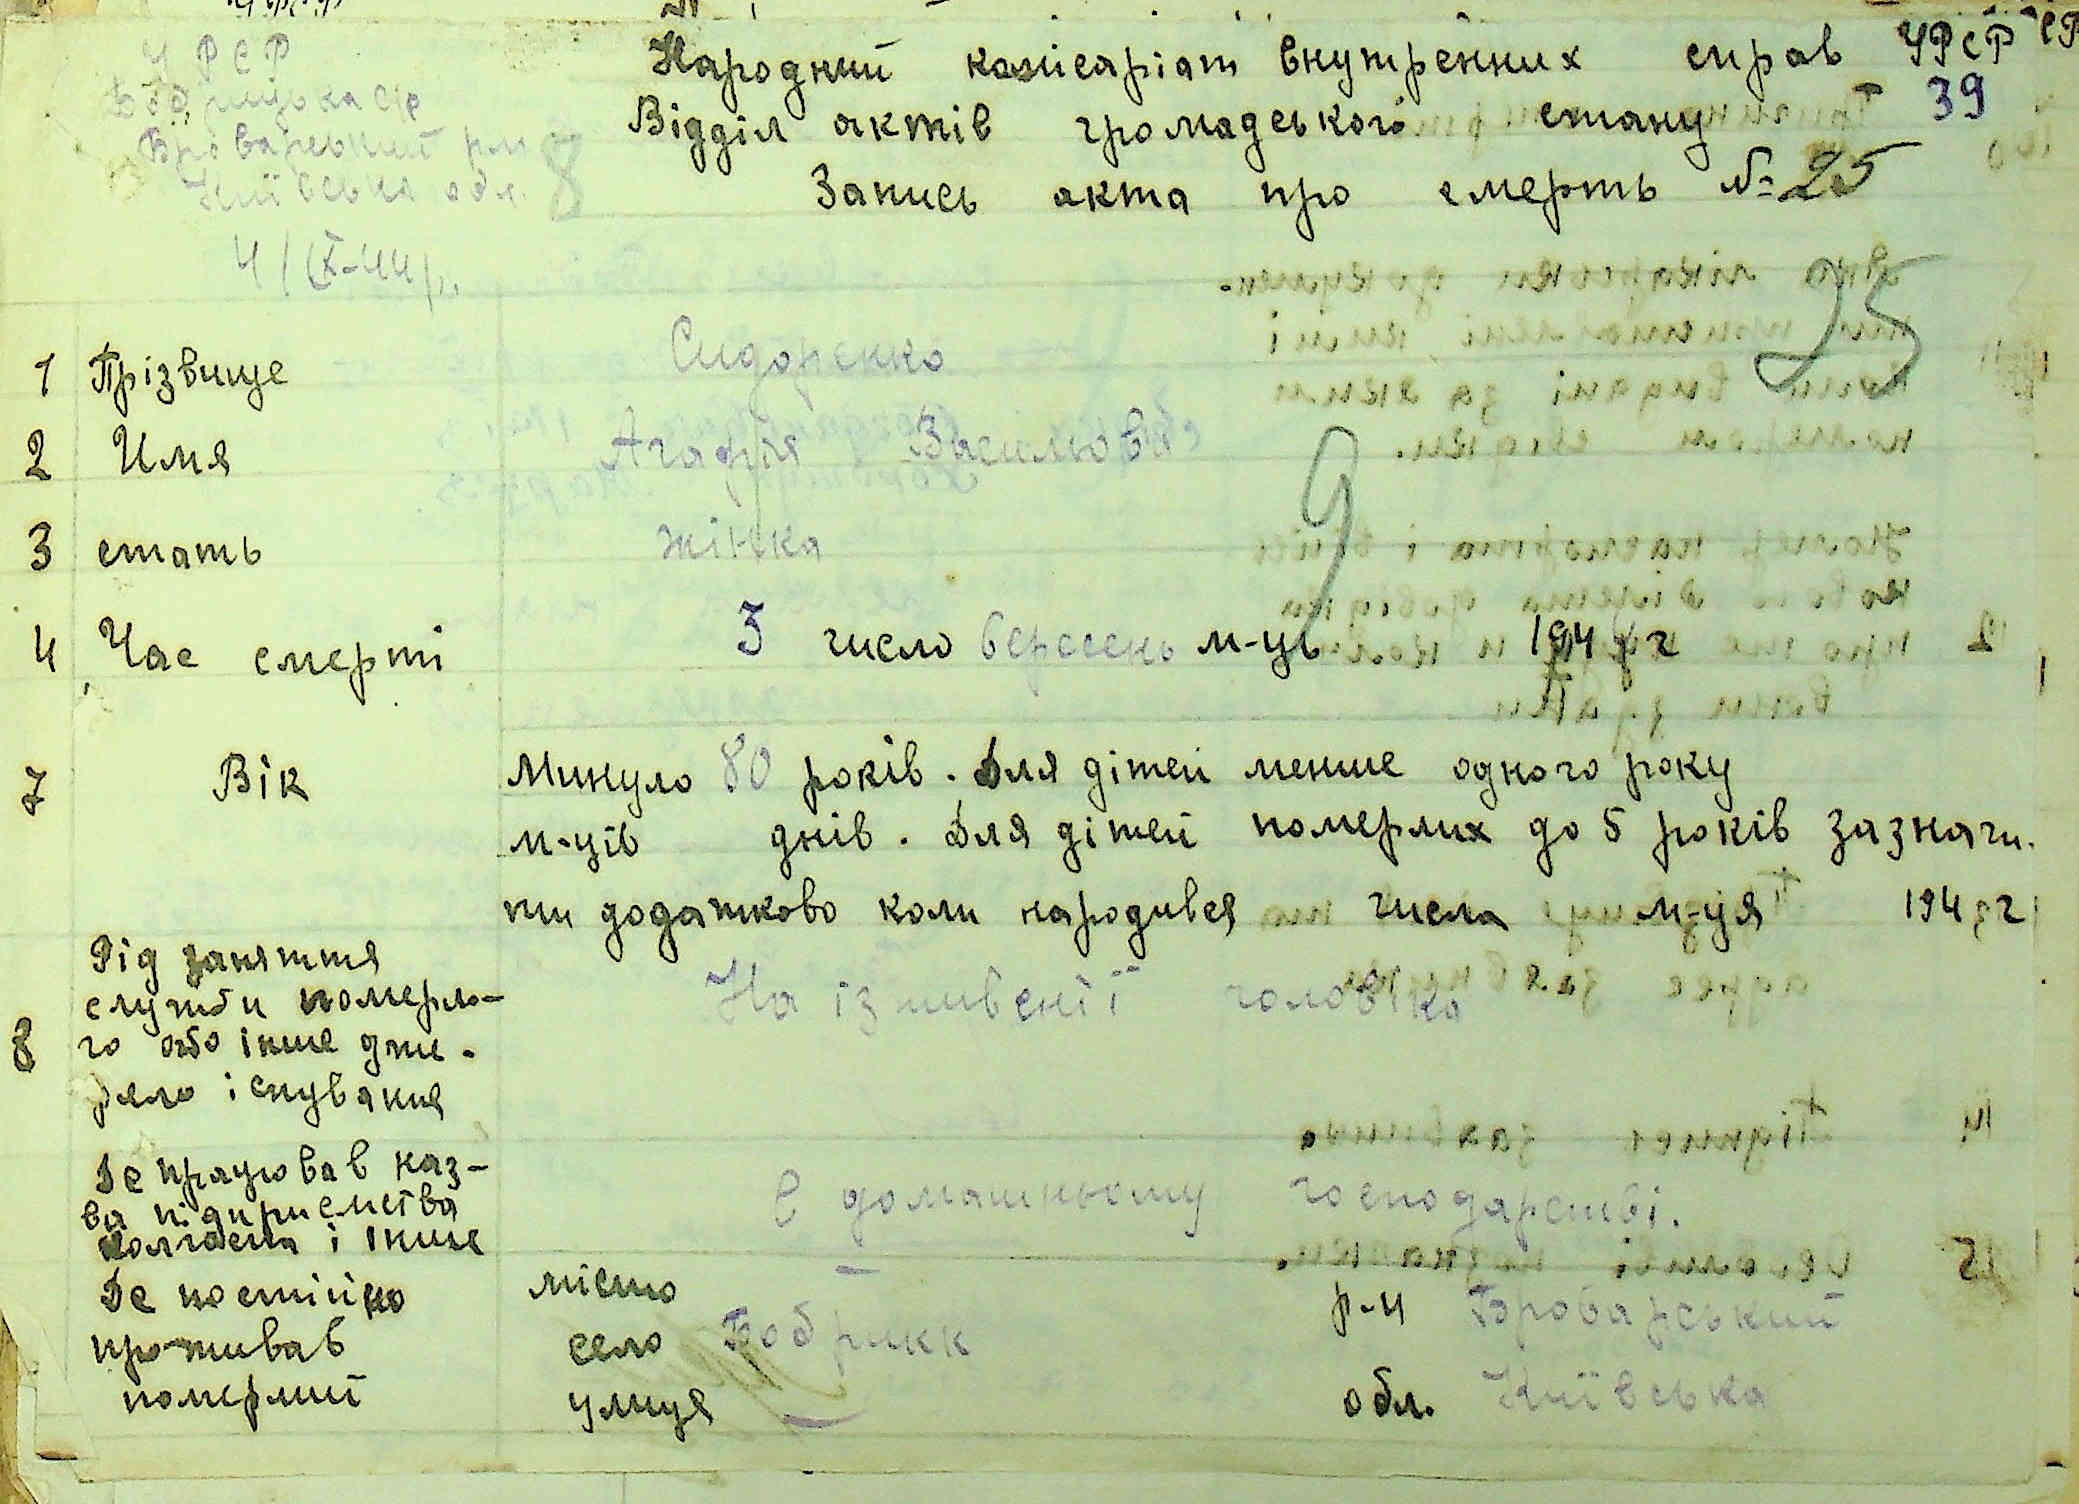 УРСР
Бобрицька с/р
Броварський р-н
Київська обл.
4/IX-44р.
Народний комісаріат внутренних справ УРСР
39
Відділ актів громадського стану
Запись акта про смерть № 25
25
1 Прізвище Сидоренко
2 Имя Агафія Васильовна
3 стать жінка
4 Час смерті 3 число вересень м-ць 1944 г
7 Вік Минуло 80 років. Для дітей менше одного року
м-ців днів. Для дітей померлих до 5 років зазначи-
ти додатково коли народився числа м-ця 194 г
8 Рід заняття
служби померло-
го або інше дже-
рело існування
На іждивенії чоловіка
Де працював наз-
ва підприємства
колгоспа і інше
В домашньому господарстві.
Де постійно
проживав
померший
місто —
село Бобрик р-н Броварський
улиця — обл. Київська